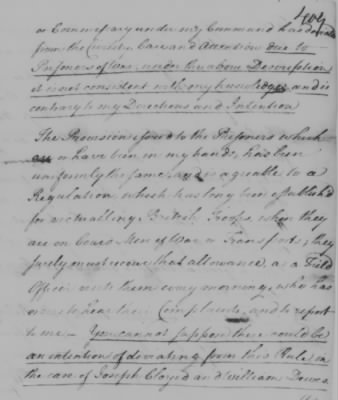 or Commissary under my Command has deviated
from the Care and Attention due to
Prisoners of War, under the above Description
it is not consistent with my knowledge, and is
contrary to my Directions and Intention
The Provision issued to the Prisoners which
are or have been in my hands, has been
uniformly the same, and is agreable to a
Regulation, which has long been establish'd
for victualling British Troops, when they
are on board Men of War or Transports; they
surely must receive that allowance, as a Field
Officer visits them every morning, who has
orders to hear their Complaints, and to report
to me. You cannot suppose there could be
an intention of deviating from this Rule in
the case of Joseph Cloyd and William Dewes